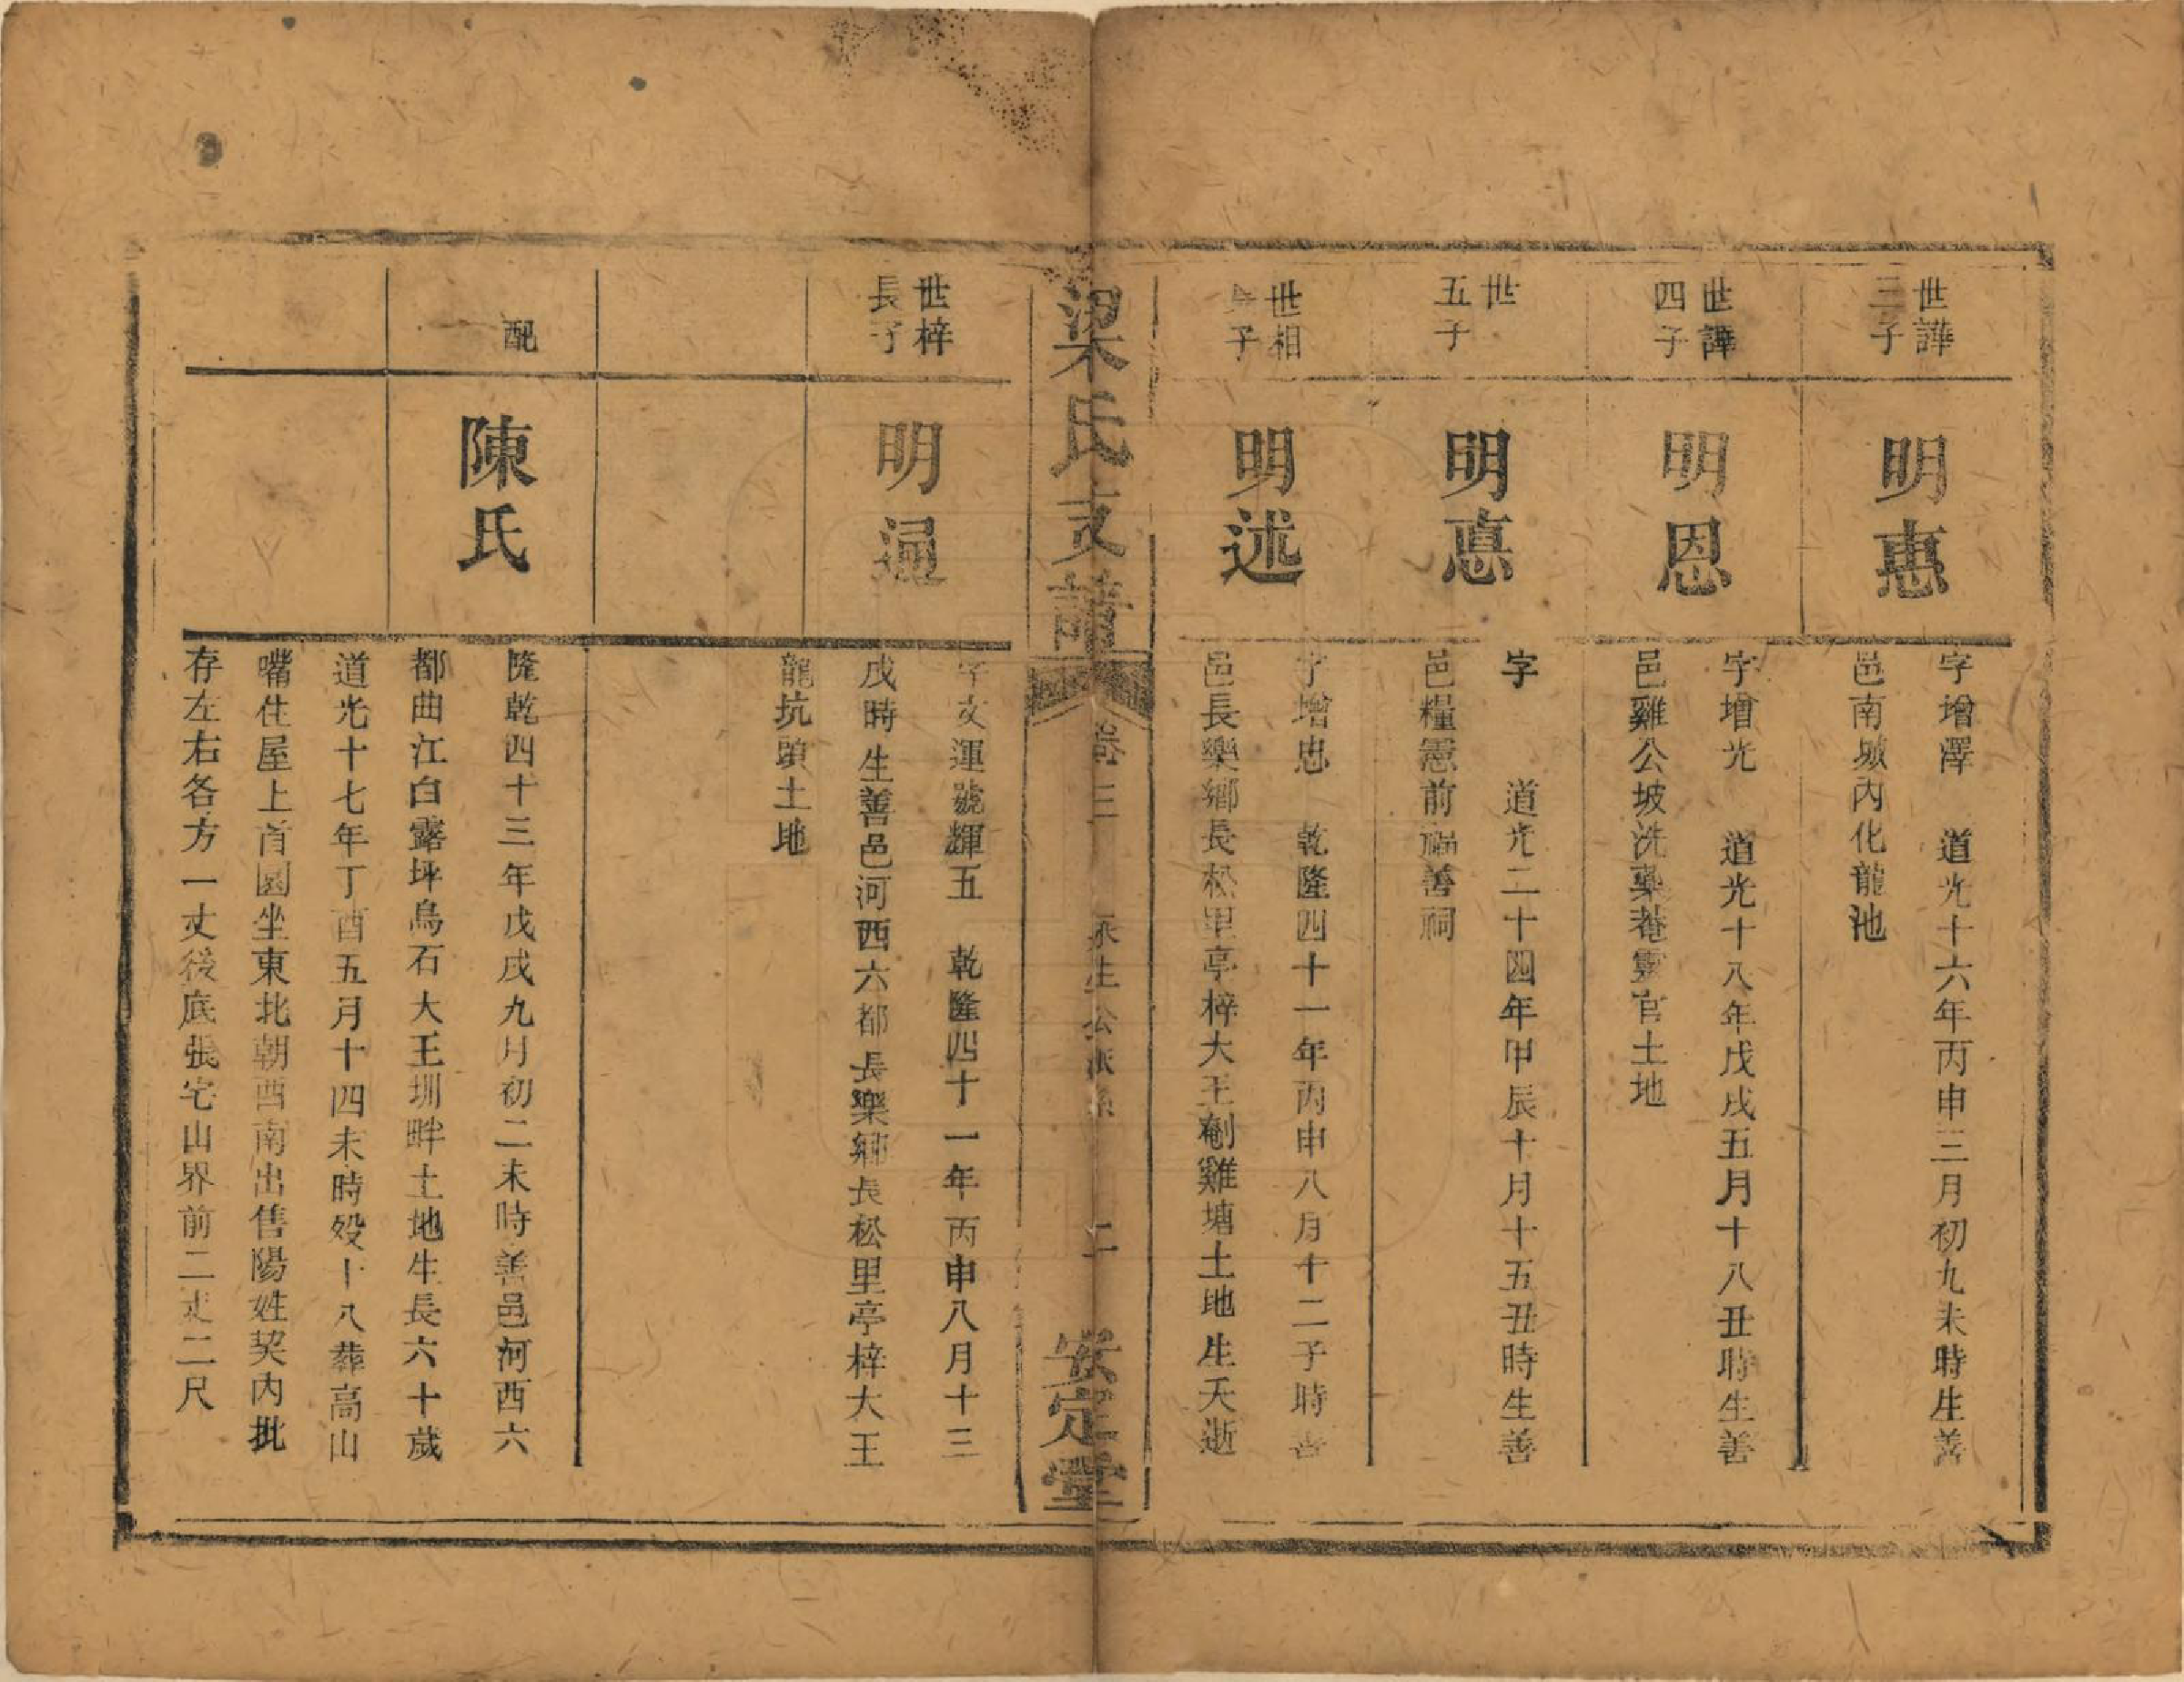 世譁
三子
明惠
字增澤 道光十六年丙申三月初九未時生善
邑南城內化龍池
世譁
四子
明恩
字增光 道光十八年戊戌五月十八丑時生善
邑雞公坡洗藥菴靈官土地
世
五子
明惪
字 道光二十四年甲辰十月十五丑時生善
邑糧憲前福善祠
世相
子
明述
字增忠 乾隆四十一年丙申八月十二子時善
邑長樂鄉長松里亭梓大王劁雞塘土地生夭逝
梁氏支譜 卷三 永生公派系 二 安定堂
世梓
長子
明通
字文運號輝五 乾隆四十一年丙申八月十三
戌時生善邑河西六都長樂鄉長松里亭梓大王
龍坑頭土地
配
陳氏
隆乾四十三年戊戌九月初二未時善邑河西六
都曲江白露坪烏石大王圳畔土地生長六十歲
道光十七年丁酉五月十四未時歿十八葬高山
嘴住屋上首園坐東北朝酉南出售陽姓契內批
存左右各方一丈後底張宅山界前二丈二尺